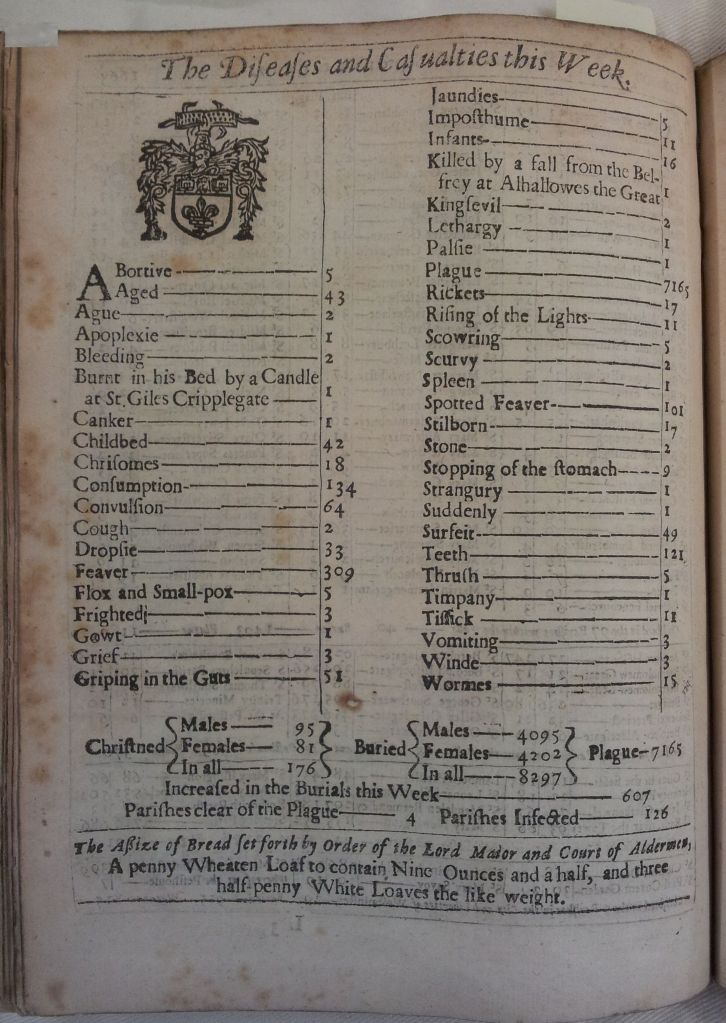 The Diſeaſes and Caſualties this Week.
ABortive — 5
Aged — 43
Ague — 2
Apoplexie — 1
Bleeding — 2
Burnt in his Bed by a Candle
at St. Giles Cripplegate — 1
Canker — 1
Childbed — 42
Chriſomes — 18
Conſumption — 134
Convulſion — 64
Cough — 2
Dropſie — 33
Feaver — 309
Flox and Small-pox — 5
Frighted — 3
Gowt — 1
Grief — 3
Griping in the Guts — 51
Jaundies — 5
Impoſthume — 11
Infants — 16
Killed by a fall from the Bel-
frey at Alhallowes the Great — 1
Kingſevil — 2
Lethargy — 1
Palſie — 1
Plague — 7165
Rickets — 17
Riſing of the Lights — 11
Scowring — 5
Scurvy — 2
Spleen — 1
Spotted Feaver — 101
Stilborn — 17
Stone — 2
Stopping of the ſtomach — 9
Strangury — 1
Suddenly — 1
Surfeit — 49
Teeth — 121
Thruſh — 5
Timpany — 1
Tiſſick — 11
Vomiting — 3
Winde — 3
Wormes — 15
Chriſtned { Males — 95
Females — 81
In all — 176 }
Buried { Males — 4095
Females — 4202
In all — 8297 } Plague — 7165
Increaſed in the Burials this Week — 607
Pariſhes clear of the Plague — 4 Pariſhes Infected — 126
The Aſſize of Bread ſet forth by Order of the Lord Maior and Court of Aldermen,
A penny Wheaten Loaf to contain Nine Ounces and a half, and three
half-penny White Loaves the like weight.